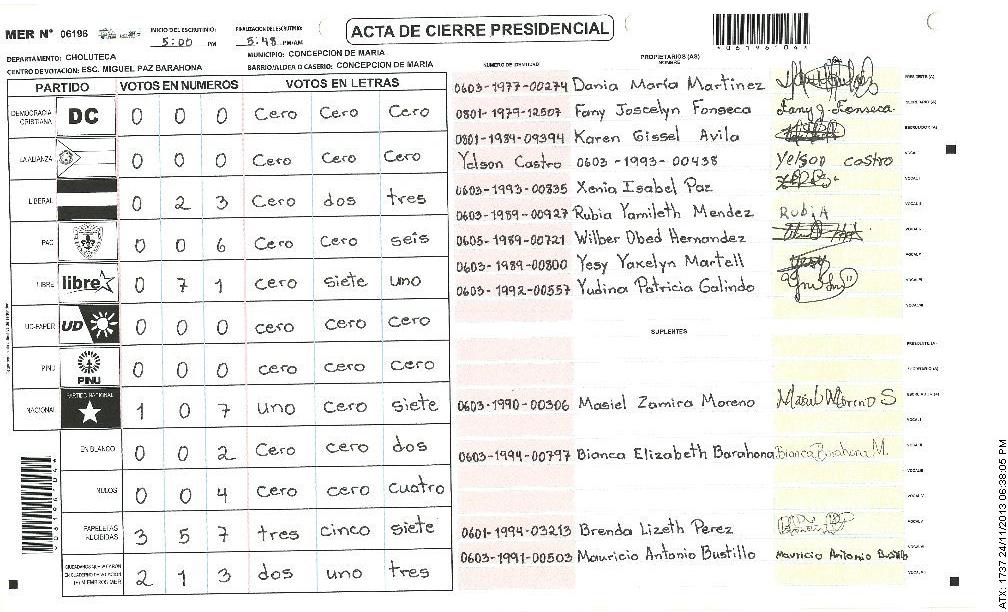 MER N° 06196
INICIO DEL ESCRUTINIO:
5:00 PM
FINALIZACION DEL ESCRUTINIO:
5:48 PM/AM
ACTA DE CIERRE PRESIDENCIAL
DEPARTAMENTO: CHOLUTECA
MUNICIPIO: CONCEPCION DE MARIA
CENTRO DE VOTACION: ESC. MIGUEL PAZ BARAHONA
BARRIO/ALDEA O CASERIO: CONCEPCION DE MARIA
PARTIDO VOTOS EN NUMEROS VOTOS EN LETRAS
DEMOCRACIA CRISTIANA DC 0 0 0 Cero Cero Cero
LA ALIANZA 0 0 0 Cero Cero Cero
LIBERAL 0 2 3 Cero dos tres
PAC 0 0 6 Cero Cero seis
LIBRE libre 0 7 1 cero siete uno
UD-FAPER UD 0 0 0 cero Cero Cero
PINU PINU 0 0 0 cero cero cero
NACIONAL PARTIDO NACIONAL 1 0 7 uno cero siete
EN BLANCO 0 0 2 Cero cero dos
NULOS 0 0 4 cero cero cuatro
PAPELETAS RECIBIDAS 3 5 7 tres cinco siete
2 1 3 dos uno tres
NUMERO DE IDENTIDAD PROPIETARIOS (AS) NOMBRE
0603-1977-00274 Dania María Martinez PRESIDENTE (A)
0801-1979-12507 Fany Joscelyn Fonseca Fany J. Fonseca SECRETARIO (A)
0801-1984-09394 Karen Gissel Avila ESCRUTADOR (A)
Yelson Castro 0603-1993-00438 Yelson castro
0603-1993-00835 Xenia Isabel Paz
0603-1989-00927 Rubia Yamileth Mendez Rubia
0605-1989-00721 Wilber Obed Hernandez
0603-1989-00800 Yesy Yaxelyn Martell Yesy
0603-1992-00557 Yudina Patricia Galindo
SUPLENTES
PRESIDENTE (A)
SECRETARIO (A)
0603-1990-00306 Masiel Zamira Moreno Masiel Moreno S ESCRUTADOR (A)
0603-1994-00797 Bianca Elizabeth Barahona Bianca Barahona M.
0601-1994-03213 Brenda Lizeth Perez
0603-1991-00503 Mauricio Antonio Bustillo Mauricio Antonio Bustillo
ATX: 1737 24/11/2013 06:38:05 PM